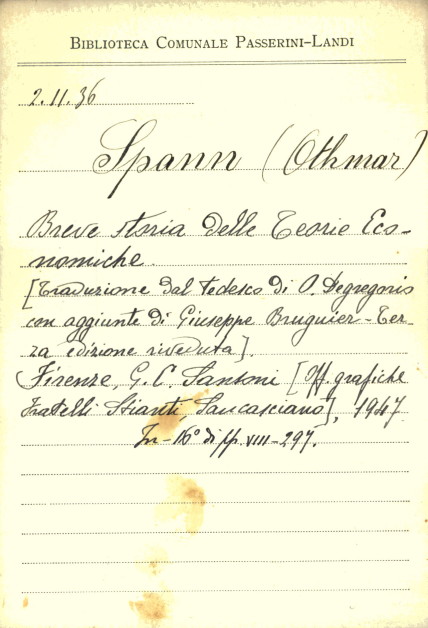 BIBLIOTECA COMUNALE PASSERINI-LANDI
2.11.36
Spann (Othmar)
Breve storia delle Teorie Eco-
nomiche
[Traduzione dal tedesco di O. Degregorio
con aggiunte di Giuseppe Bruguier - Ter-
za edizione riveduta].
Firenze, G. C. Sansoni [Off. grafiche
Fratelli Stianti Sancasciano], 1947
In-16° di pp. VIII-297.